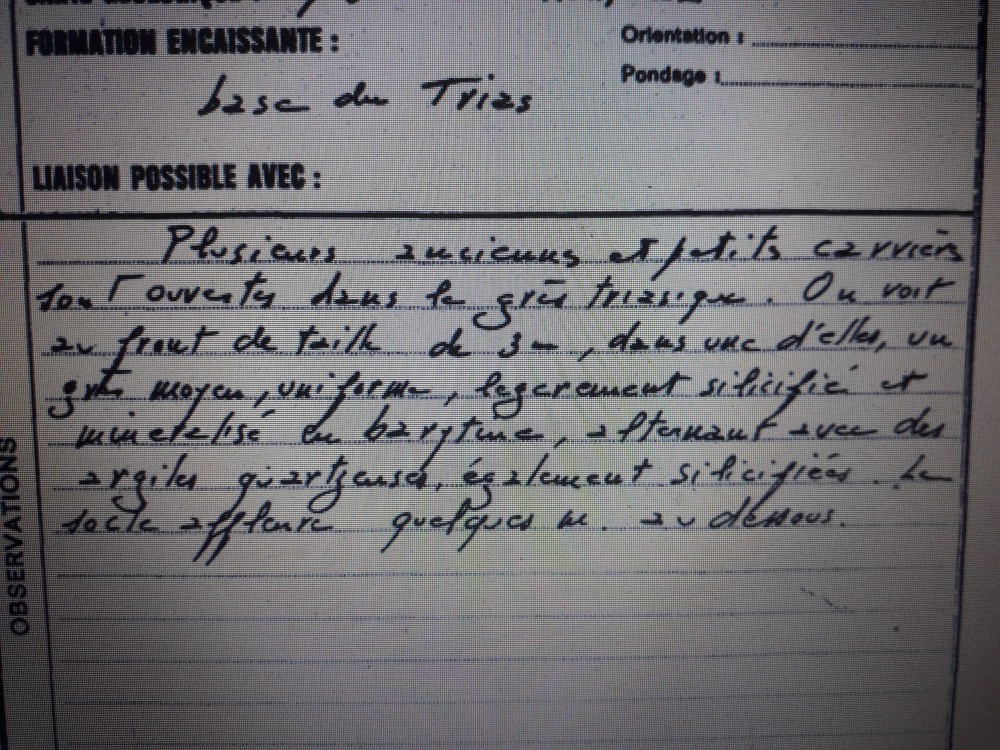 FORMATION ENCAISSANTE :
Orientation :
Pendage :
base du Trias
LIAISON POSSIBLE AVEC :
Plusieurs anciennes et petits carrières
sont ouvertes dans le grès triasique. On voit
au front de taille de 3 m, dans une d'elles, un
grès moyen, uniforme, legerement silicifié et
mineralisé en barytine, alternant avec des
argiles quartzeuses, également silicifiées. Le
socle affleure quelques m. au dessous.
OBSERVATIONS